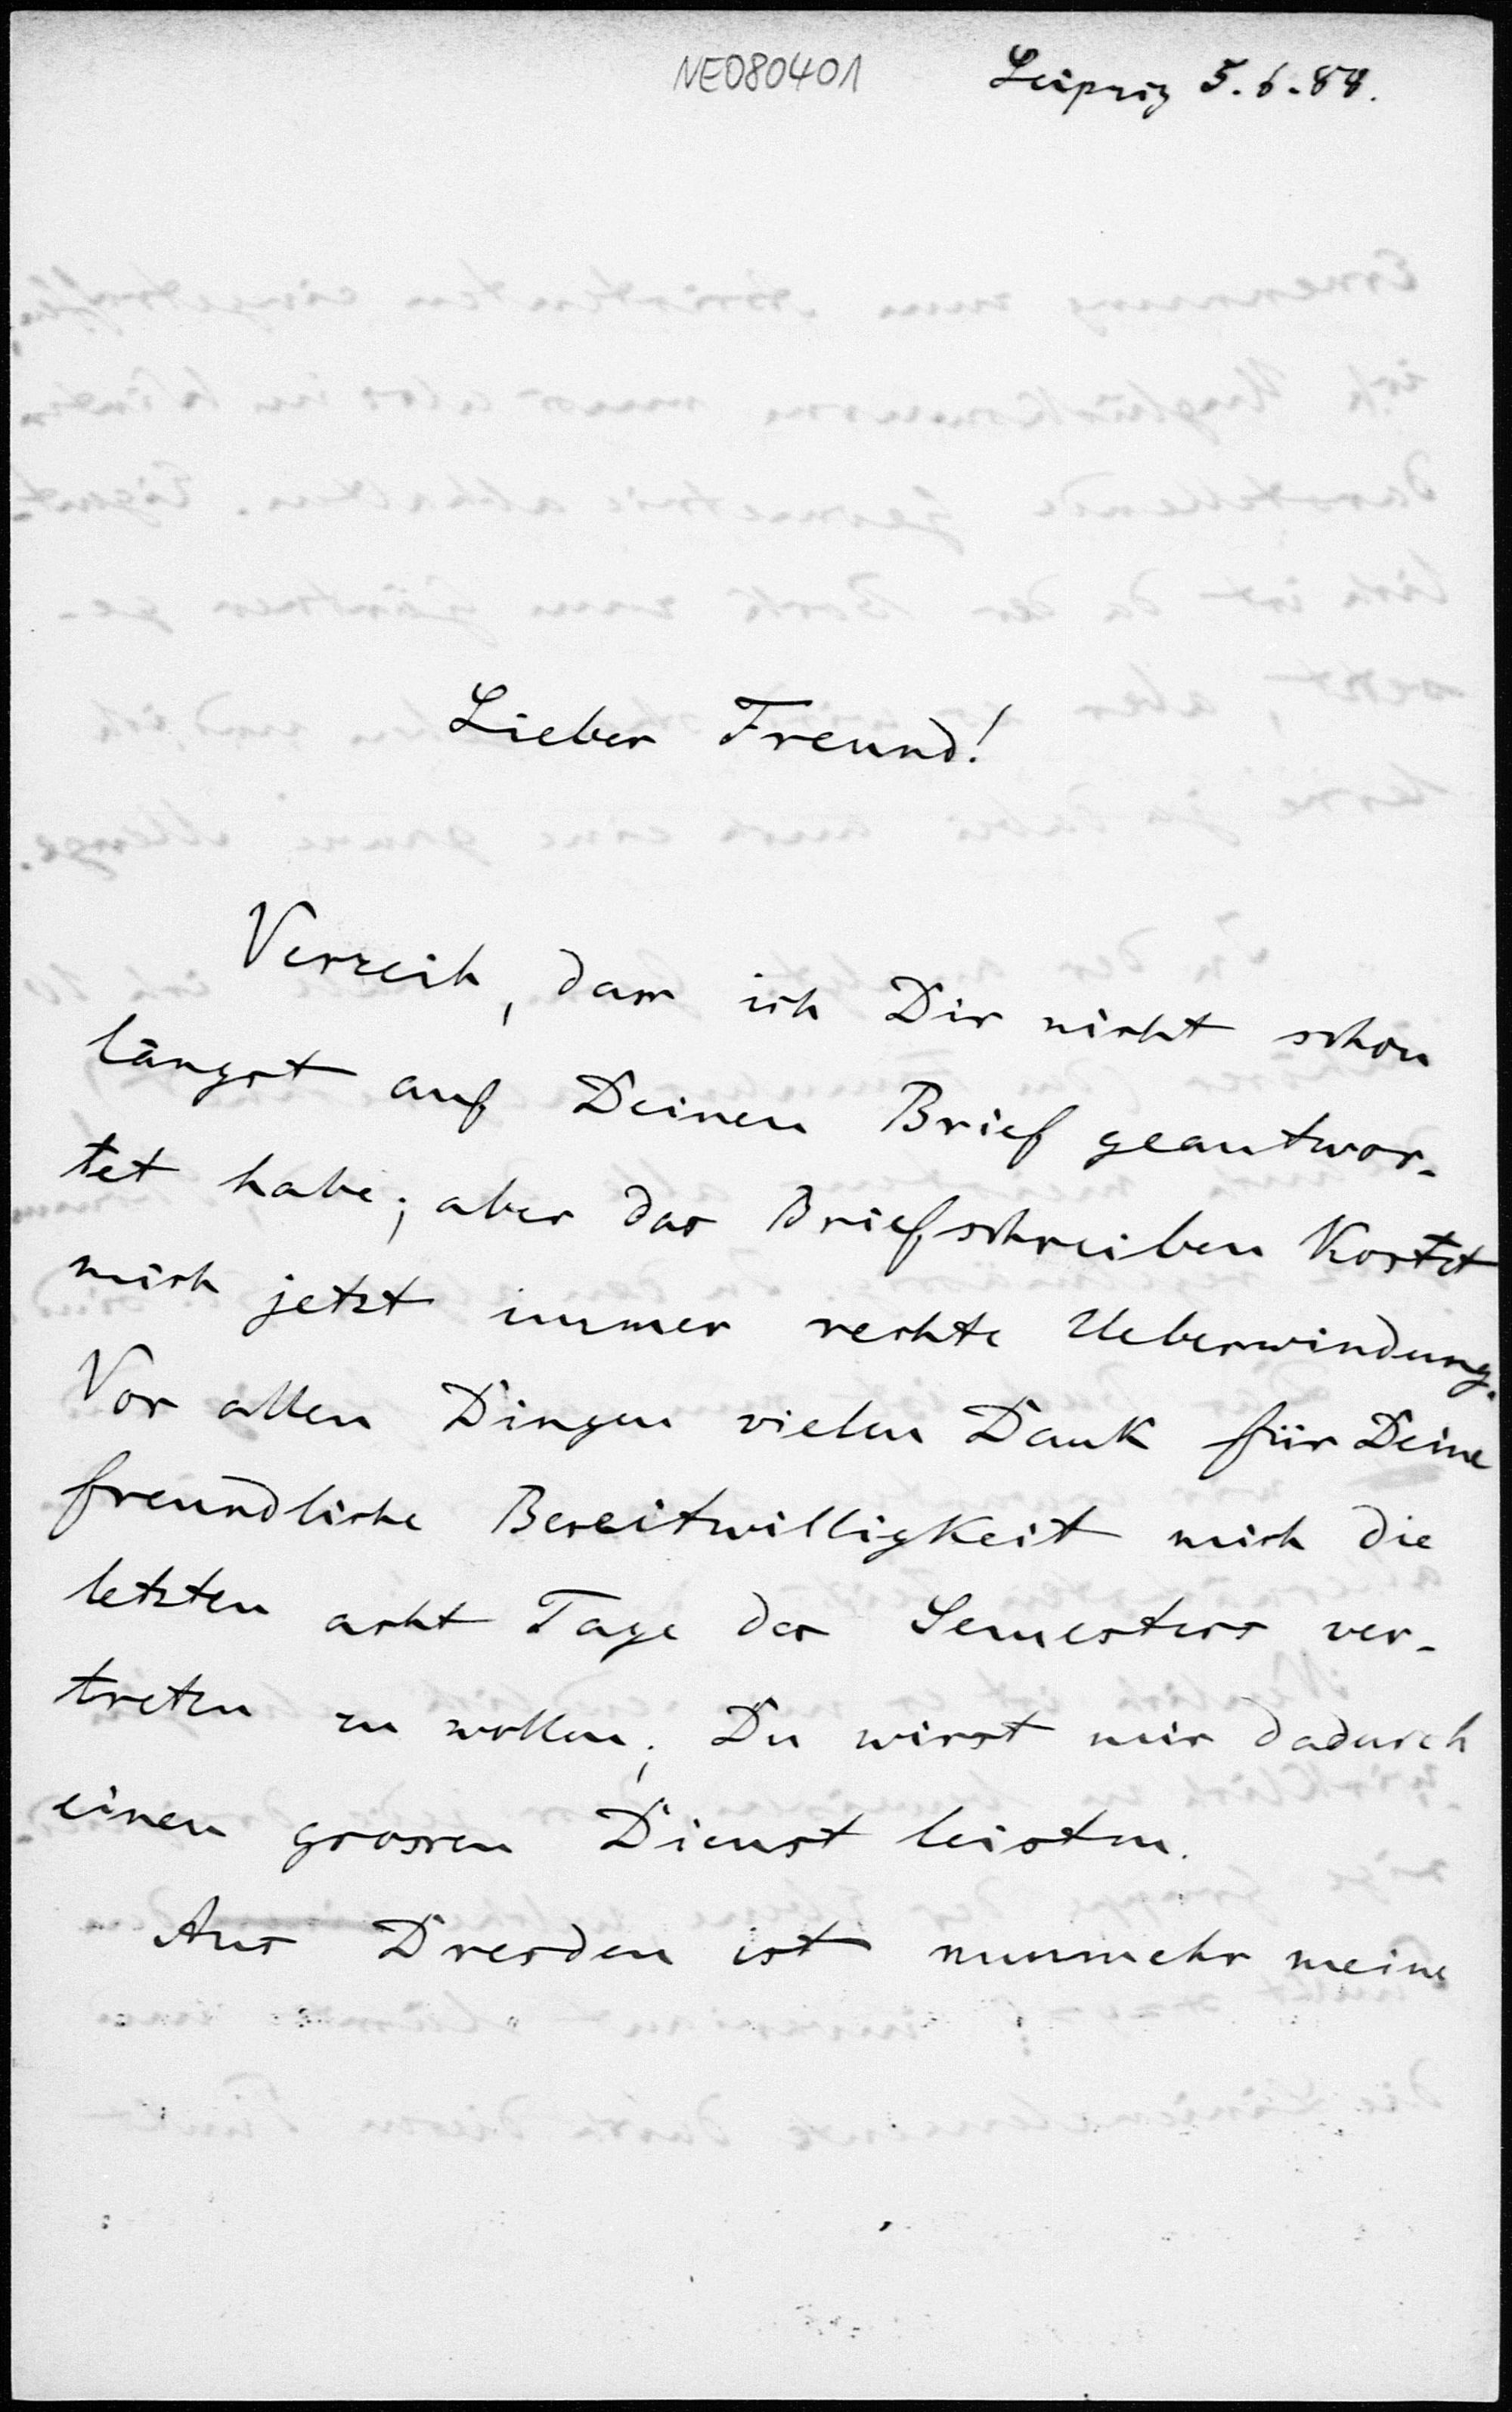 NE080401
Leipzig 5.6.88.
Lieber Freund!
Verzeih, dass ich Dir nicht schon
längst auf Deinen Brief geantwor-
tet habe; aber das Briefschreiben kostet
mich jetzt immer rechte Ueberwindung.
Vor allen Dingen vielen Dank für Deine
freundliche Bereitwilligkeit mich die
letzten acht Tage des Semesters ver-
treten zu wollen; Du wirst mir dadurch
einen grossen Dienst leisten.
Aus Dresden ist nunmehr meine